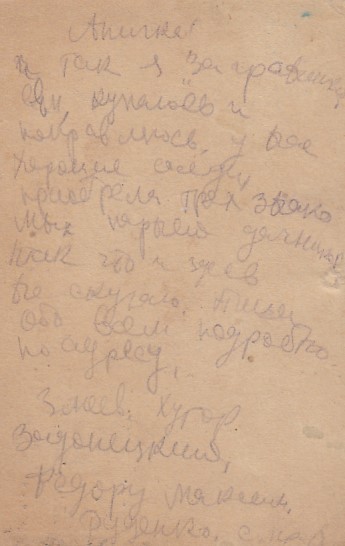 Аничка
так я "за границей
купаюсь и
поправляюсь, у нас
хорошие соседи,
приобрела трех знако
мых парней дачников
так что и здесь
не скучаю. Пиши
обо всем подробно
по адресу,
Змиев. Хутор
Задонецкий,
Федору Максим.
Руденко,